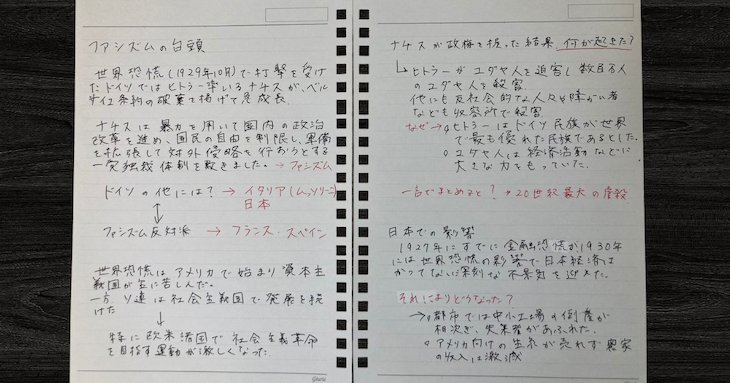 ファシズムの台頭
世界恐慌(1929年10月)で打撃を受け
たドイツではヒトラー率いるナチスが、ベルサ
イユ条約の破棄を掲げて急成長。
ナチスは暴力を用いて国内の政治
改革を進め、国民の自由を制限し、軍備
を拡張して対外侵略を行おうとする
一党独裁体制を敷きました。→ファシズム
ドイツの他には?→イタリア(ムッソリーニ)
日本
ファシズム反対派→フランス・スペイン
世界恐慌はアメリカで始まり資本主
義国が主に苦しんだ。
一方、ソ連は社会主義国で発展を続
けた
特に欧米諸国で社会主義革命
を目指す運動が激しくなった
ナチスが政権を握った結果、何が起きた?
ヒトラーがユダヤ人を迫害し数百万人
のユダヤ人を殺害
他にも反社会的な人々や障がい者
なども収容所で殺害
なぜ→○ヒトラーはドイツ民族が世界
で最も優れた民族であるとした。
○ユダヤ人は経済活動などに
大きな力をもっていた。
一言でまとめると?→20世紀最大の虐殺
日本での影響
1927年にすでに金融恐慌が1930年
には世界恐慌の影響で日本経済は
かつてない深刻な不景気を迎えた。
それによりどうなった?
→○都市では中小工場の倒産が
相次ぎ、失業者があふれた。
○アメリカ向けの生糸が売れず農家
の収入は激減